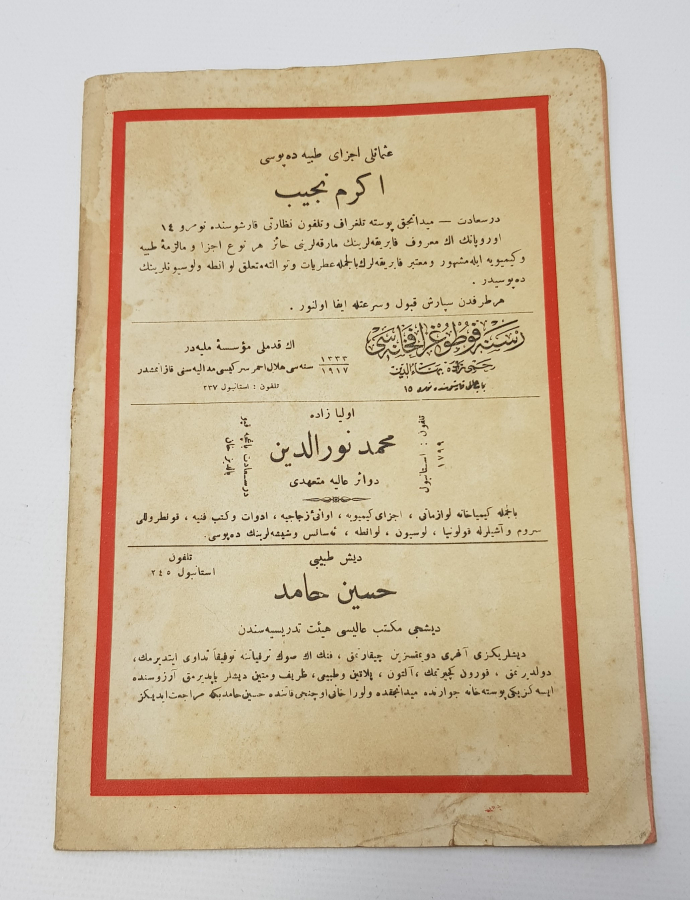 عثمانلی اجزای طبیه ده‌پوسی
اكرم نجیب
درسعادت — میدانجق پوسته تلغراف وتلفون نظارتی قارشوسنده نومرو ١٤
اوروپانك اك معروف فابریقه‌لرینك مارقه‌لرینی حائز هر نوع اجزا و مالزمهٔ طبیه
وكیمیویه ایله مشهور ومعتبر فابریقه‌لرك بالجمله عطریات وتوالته متعلق لوانطه ولوسیونلرینك
ده‌پوسیدر .
هر طرفدن سپارش قبول وسرعتله ایفا اولنور .
رسنه فوطوغرافخانه‌سی
بهاءالدین
باب‌عالی قارشوسنده نومرو ١٥
اك قدملی مؤسسهٔ ملیه‌در
١٣٣٣
١٩١٧ سنه‌سی هلال احمر سركیسی مدالیه‌سنی قازانمشدر
تلفون : استانبول ٢٣٧
اولیا زاده
محمد نورالدین
دوائر عالیه متعهدی
تلفون : استانبول
١٧٩٩
درسعادت باغچه قپو
یلدیز خان
بالجمله كیمیاخانه لوازماتی ، اجزای كیمیویه ، اوانیٔ زجاجیه ، ادوات وكتب فنیه ، قونطروللی
سروم و آشیلرله قولونیا ، لوسیون ، لوانطه ، ئه‌سانس وشیشه‌لرینك ده‌پوسی.
دیش طبیبی
حسین حامد
تلفون
استانبول ٢٤٥
دیشجی مكتب عالیسی هیئت تدریسیه‌سندن
دیشلریكزی آغری دویمقسزین چیقارتمق ، فنك اك صوك ترقیاتنه توفیقاً تداوی ایتدیرمك،
دولدیرتمق ، قورون كچیرتمك ، آلتون ، پلاتین وطبیعی، ظریف ومتین دیشلر یاپدیرمق آرزوسنده
ایسه‌كز یكی پوسته‌خانه جوارنده میدانجقده ولورا خانی اوچنجی قاتنده حسین حامد بكه مراجعت ایدیكز